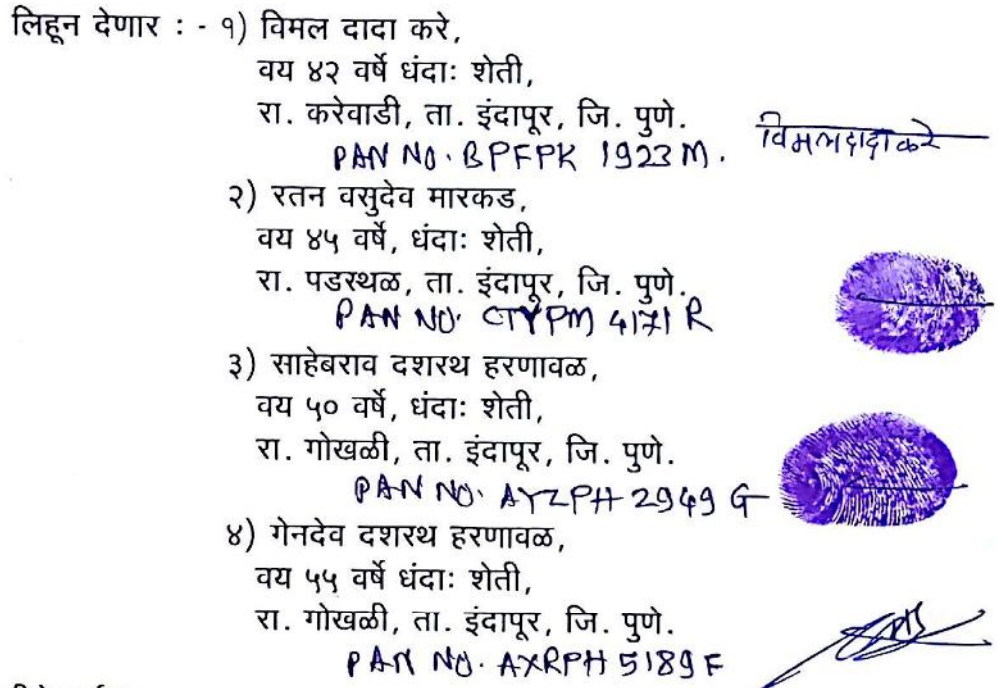 लिहून देणार : - १) विमल दादा करे,
वय ४२ वर्षे धंदाः शेती,
रा. करेवाडी, ता. इंदापूर, जि. पुणे.
PAN NO. BPFPK 1923 M.
विमल दादा करे
२) रतन वसुदेव मारकड,
वय ४५ वर्षे, धंदाः शेती,
रा. पडस्थळ, ता. इंदापूर, जि. पुणे.
PAN NO. CTYPM 4171 R
३) साहेबराव दशरथ हरणावळ,
वय ५० वर्षे, धंदाः शेती,
रा. गोखळी, ता. इंदापूर, जि. पुणे.
PAN NO. AYZPH 2949 G
४) गेनदेव दशरथ हरणावळ,
वय ५५ वर्षे धंदाः शेती,
रा. गोखळी, ता. इंदापूर, जि. पुणे.
PAN NO. AXRPH 5189 F